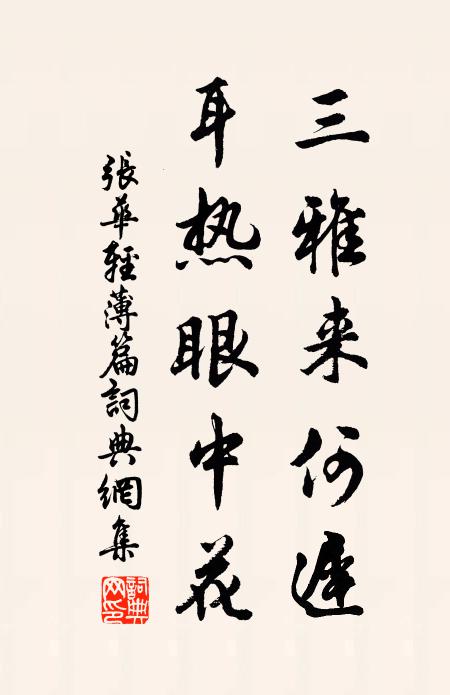 三雅来何遲
耳热眼中花
張華輕薄篇詞典網集
詞典网印